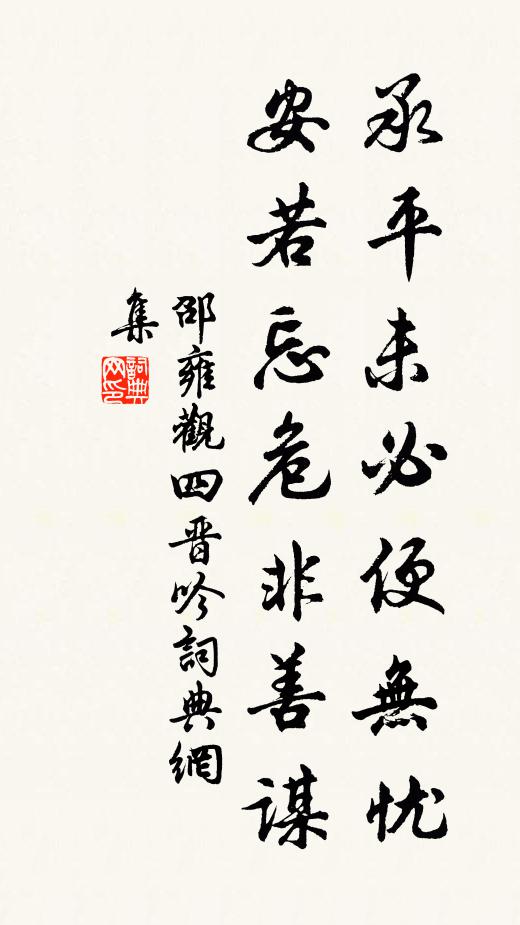 承平未必便無忧
安若忘危非善謀
邵雍觀四晋吟詞典網
集
詞典
网印